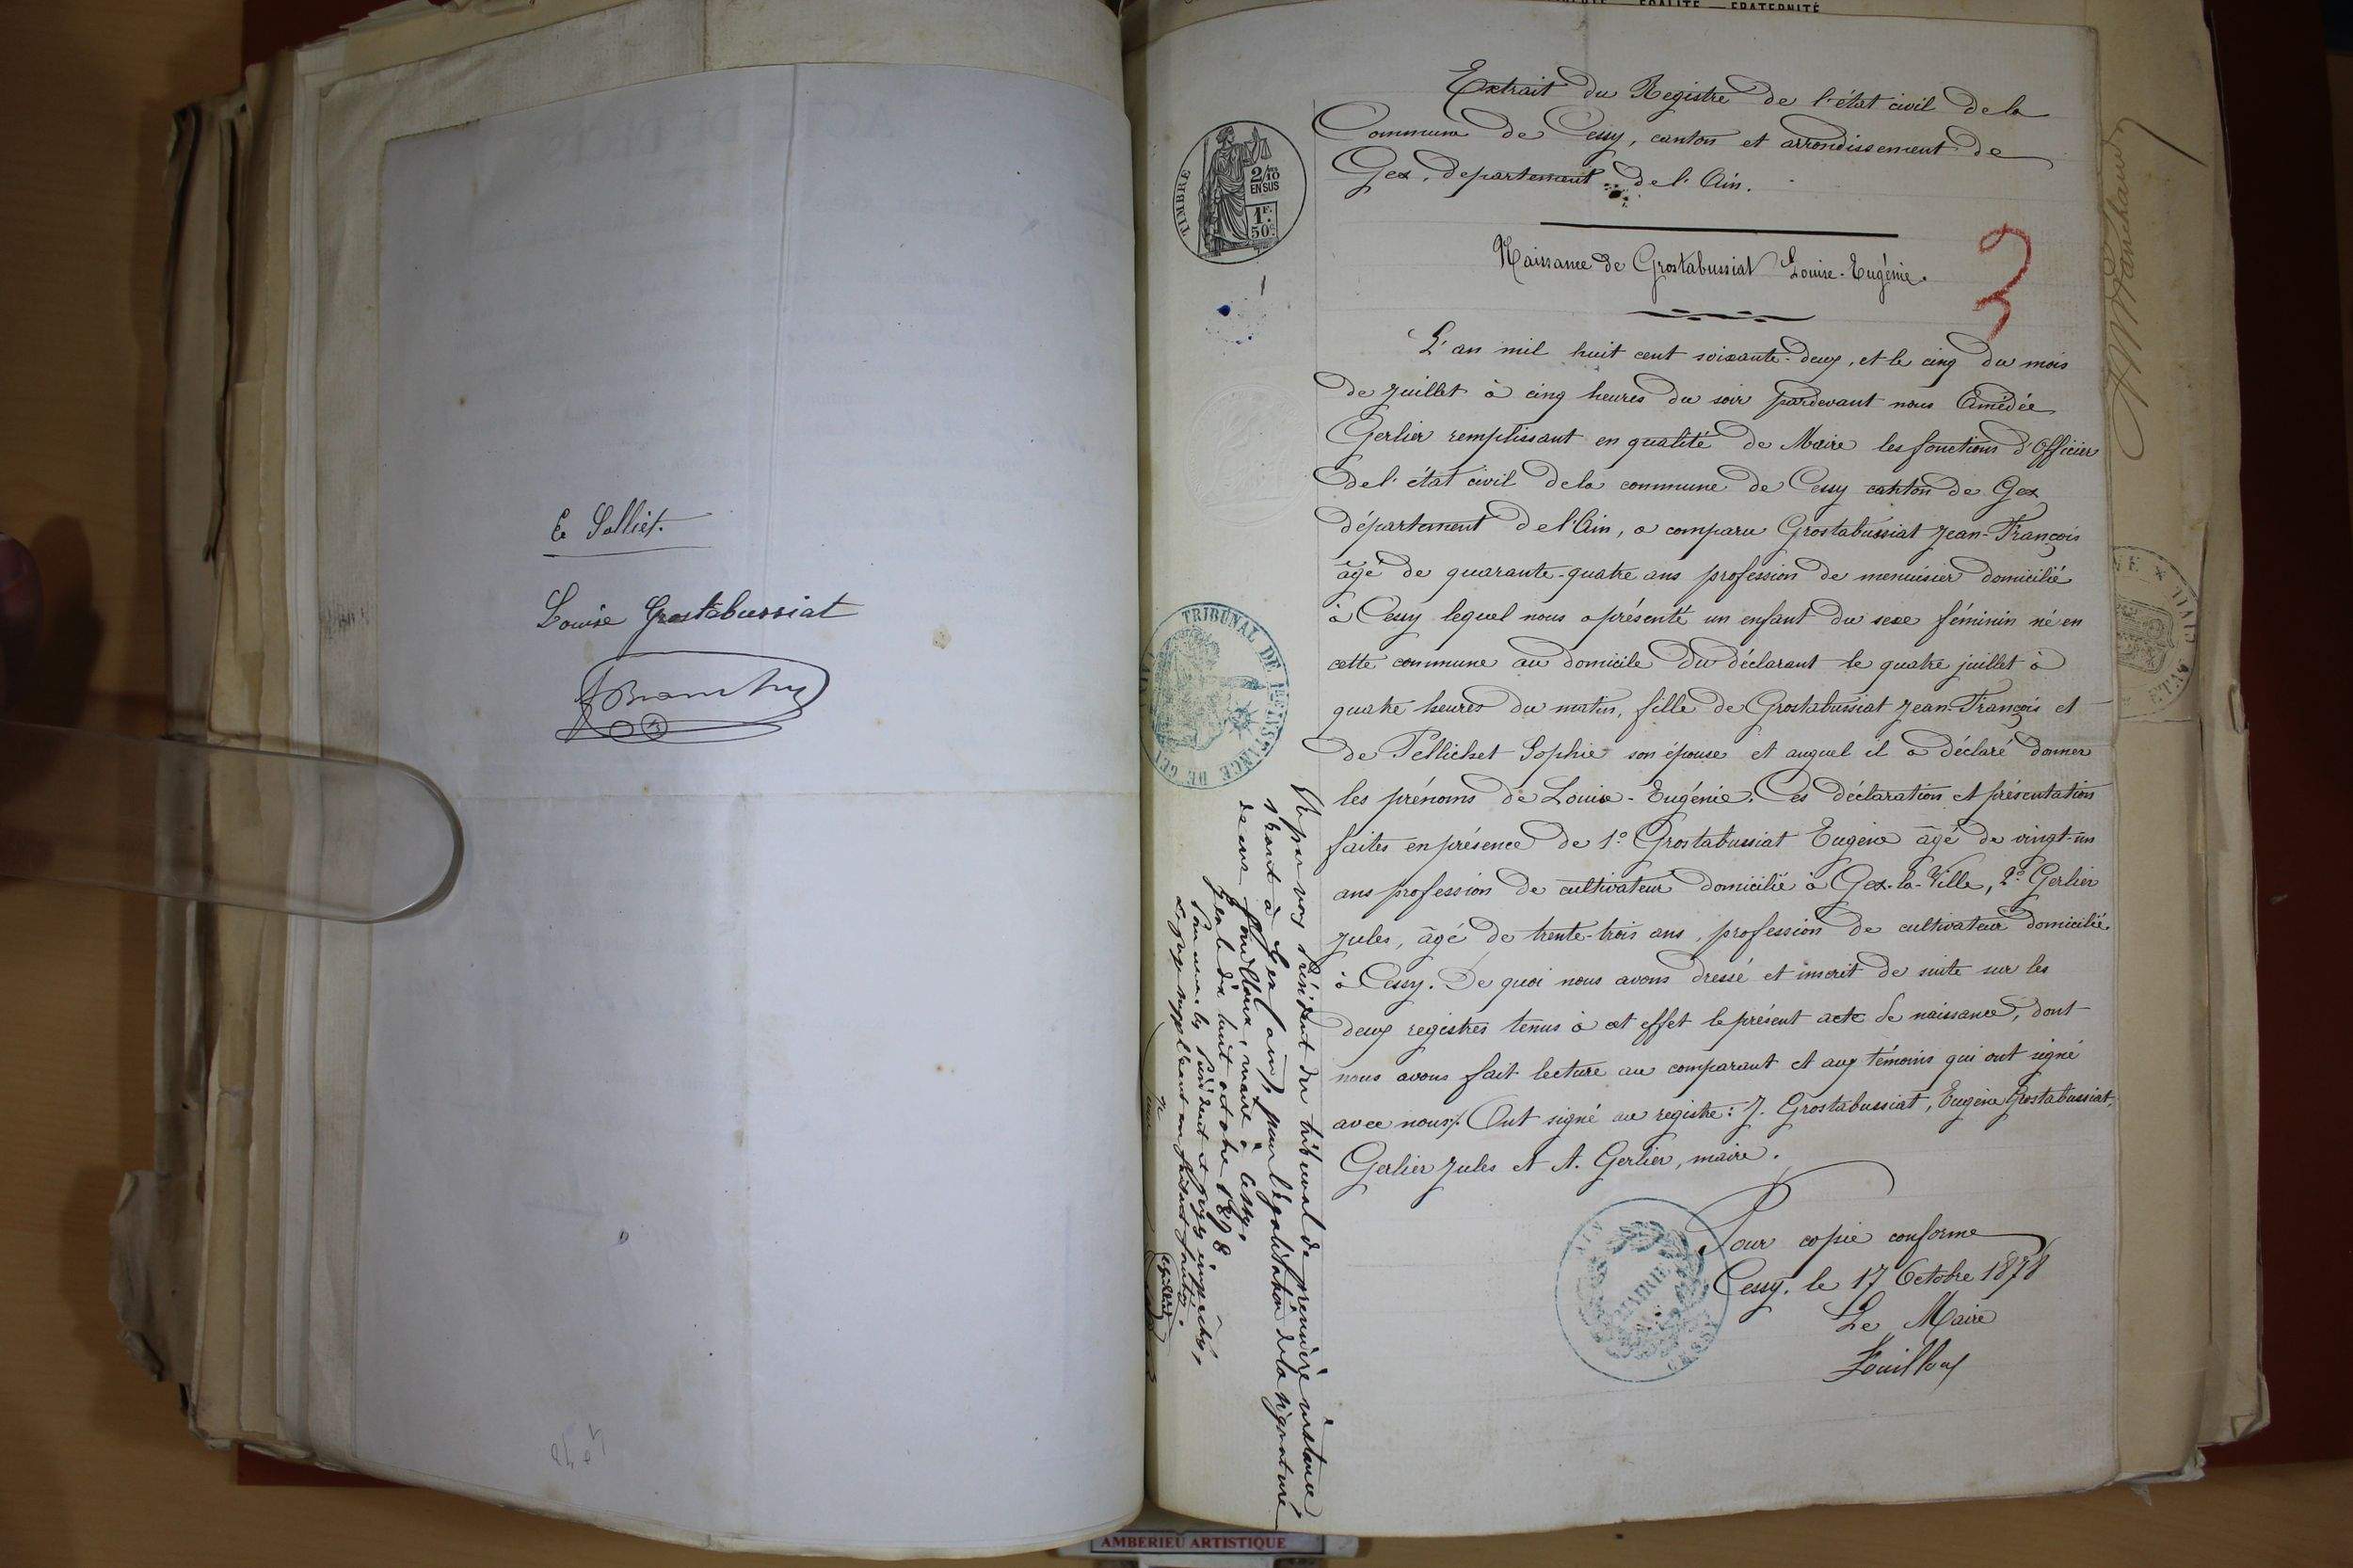 E. Solliet.
Louise Grostabussiat
LIBERTÉ — ÉGALITÉ — FRATERNITÉ
TIMBRE
2/10
EN SUS
1F.
50c.
Extrait du Registre de l'état civil de la
Commune de Cessy, canton et arrondissement de
Gex, département de l'Ain.
Naissance de Grostabussiat Louise-Eugénie.
3
L'an mil huit cent soixante-deux, et le cinq du mois
de juillet à cinq heures du soir pardevant nous Amédée
Gerlier remplissant en qualité de Maire les fonctions d'Officier
de l'état civil de la commune de Cessy canton de Gex
département de l'Ain, a comparu Grostabussiat Jean-François
âgé de quarante-quatre ans profession de menuisier domicilié
à Cessy lequel nous a présenté un enfant du sexe féminin né en
cette commune au domicile du déclarant le quatre juillet à
quatre heures du matin, fille de Grostabussiat Jean-François et
de Pellichet Sophie son épouse et auquel il a déclaré donner
les prénoms de Louise-Eugénie. Ces déclaration et présentation
faites en présence de 1° Grostabussiat Eugène âgé de vingt-un
ans profession de cultivateur domicilié à Gex-la-Ville, 2° Gerlier
Jules, âgé de trente-trois ans, profession de cultivateur domicilié
à Cessy. De quoi nous avons dressé et inscrit de suite sur les
deux registres tenus à cet effet le présent acte de naissance, dont
nous avons fait lecture au comparant et aux témoins qui ont signé
avec nous. Ont signé au registre: J. Grostabussiat, Eugène Grostabussiat,
Gerlier Jules et A. Gerlier, maire.
Pour copie conforme
Cessy, le 17 Octobre 1878
Le Maire
Fouilloux
MAIRIE
CESSY
AIN
TRIBUNAL DE 1ERE INSTANCE DE GEX
Vu par nous Président du tribunal de première instance
séant à Gex (ain), pour légalisation de la signature
de Fouilloux, maire à Cessy.
Gex le dix huit octobre 1878
Pour MM. les Président et juges empêchés,
Le juge suppléant en faisant fonction.
AMBERIEU ARTISTIQUE